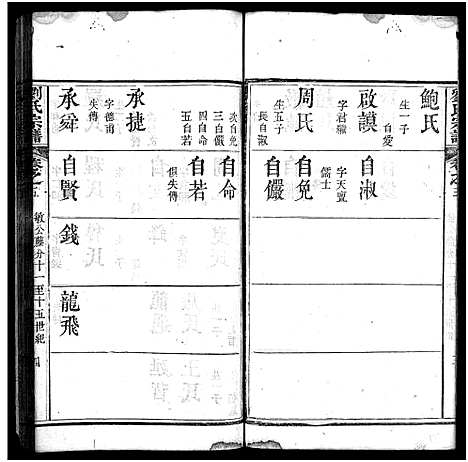 鮑氏
生一子
自愛
啟謨
字君猷
周氏
生五子
長自淑
次自免
三自儼
四自命
五自若
承捷
字德甫
承舜
失傳
自淑
字天寬
自免
儒士
自儼
自命
自若
俱失傳
自賢
錢
龍飛
劉氏宗譜
卷之五
敏公藤分十一至十五世紀